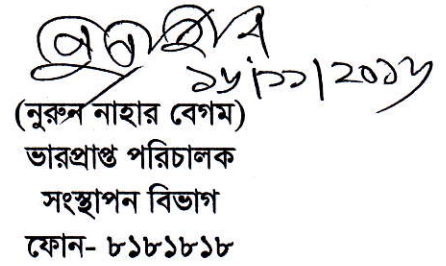 ১৮/১১/২০১৮
(নুরুন নাহার বেগম)
ভারপ্রাপ্ত পরিচালক
সংস্থাপন বিভাগ
ফোন- ৮১৮১৮১৮